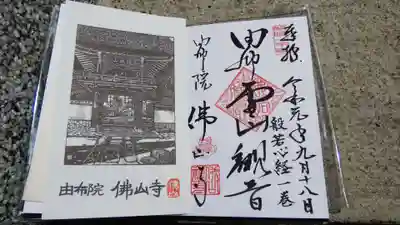 奉拝
令和元年九月十八日
般若心経一巻
由布霊山観音
由布院
佛山寺
由布院 佛山寺